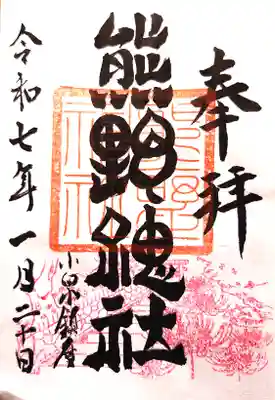 奉拝
熊野神社
小泉鎮座
令和七年一月二十日